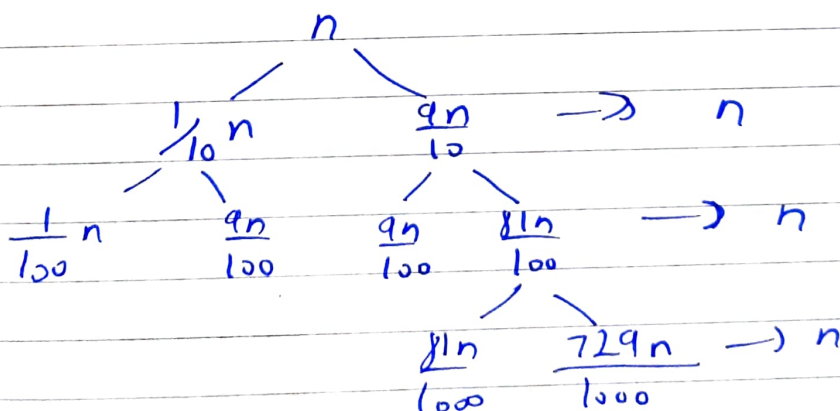 n
1/10 n 9n/10 → n
1/100 n 9n/100 9n/100 81n/100 → n
81n/1000 729n/1000 → n